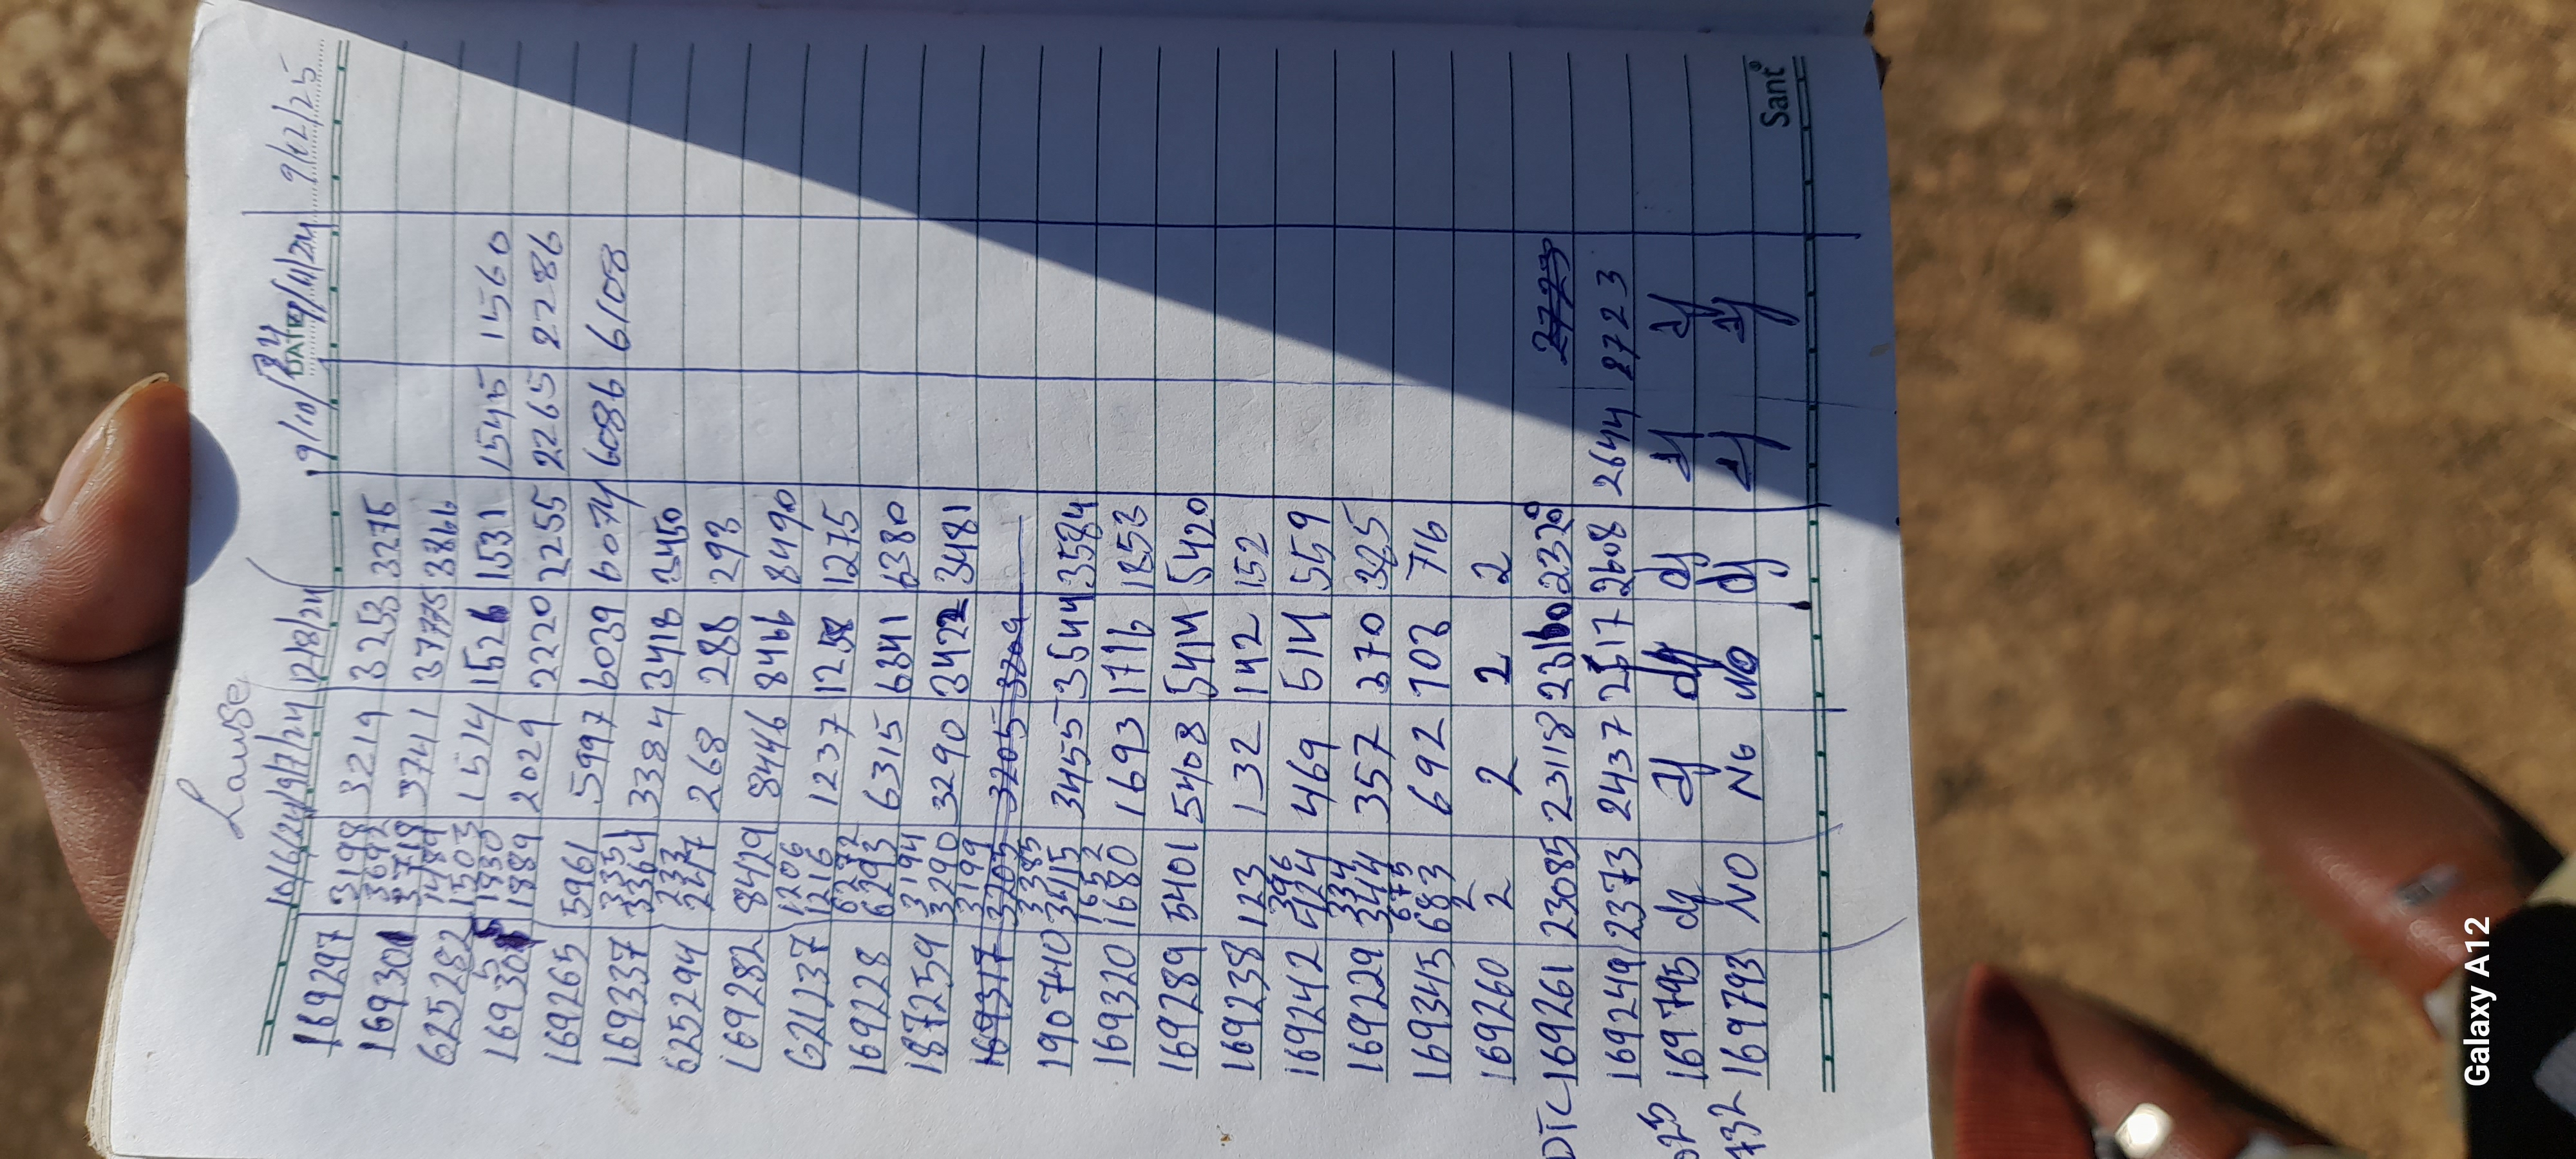 Lause
10/6/24 9/7/24 12/8/24 9/10/24 DATE 9/11/24 9/12/25
169297 3198 3219 3253 3275
3692
169301 3719 3741 3775 3866
1489
625282 1503 1514 1526 1531 1545 1560
1830
169305 1889 2029 2220 2255 2265 2286
169265 5961 5997 6039 6074 6086 6108
3351
169337 3364 3384 3418 3450
233
625294 247 268 288 293
169282 8429 8446 8466 8490
1206
621237 1216 1237 1258 1275
6272
169228 6293 6315 6341 6380
3194
1872259 3290 3290 3422 3481
3199
169317 3205 3205 3209
3385
190740 3415 3455 3544 3584
1652
169320 1680 1693 1716 1853
169289 5401 5408 5414 5420
169238 123 132 142 152
396
169242 424 469 514 559
334
169229 344 357 370 385
675
169345 683 692 703 716
2
169260 2 2 2 2
DTC 169261 23085 23118 23160 23200 2723
169249 2373 2437 2517 2608 2644 2723
025 169795 df df df df df df
732 169793 NO No No df df df
Sant
Galaxy A12